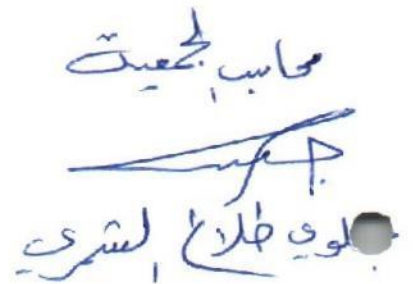 محاسب الجمعية
جلوي طلاع الشمري